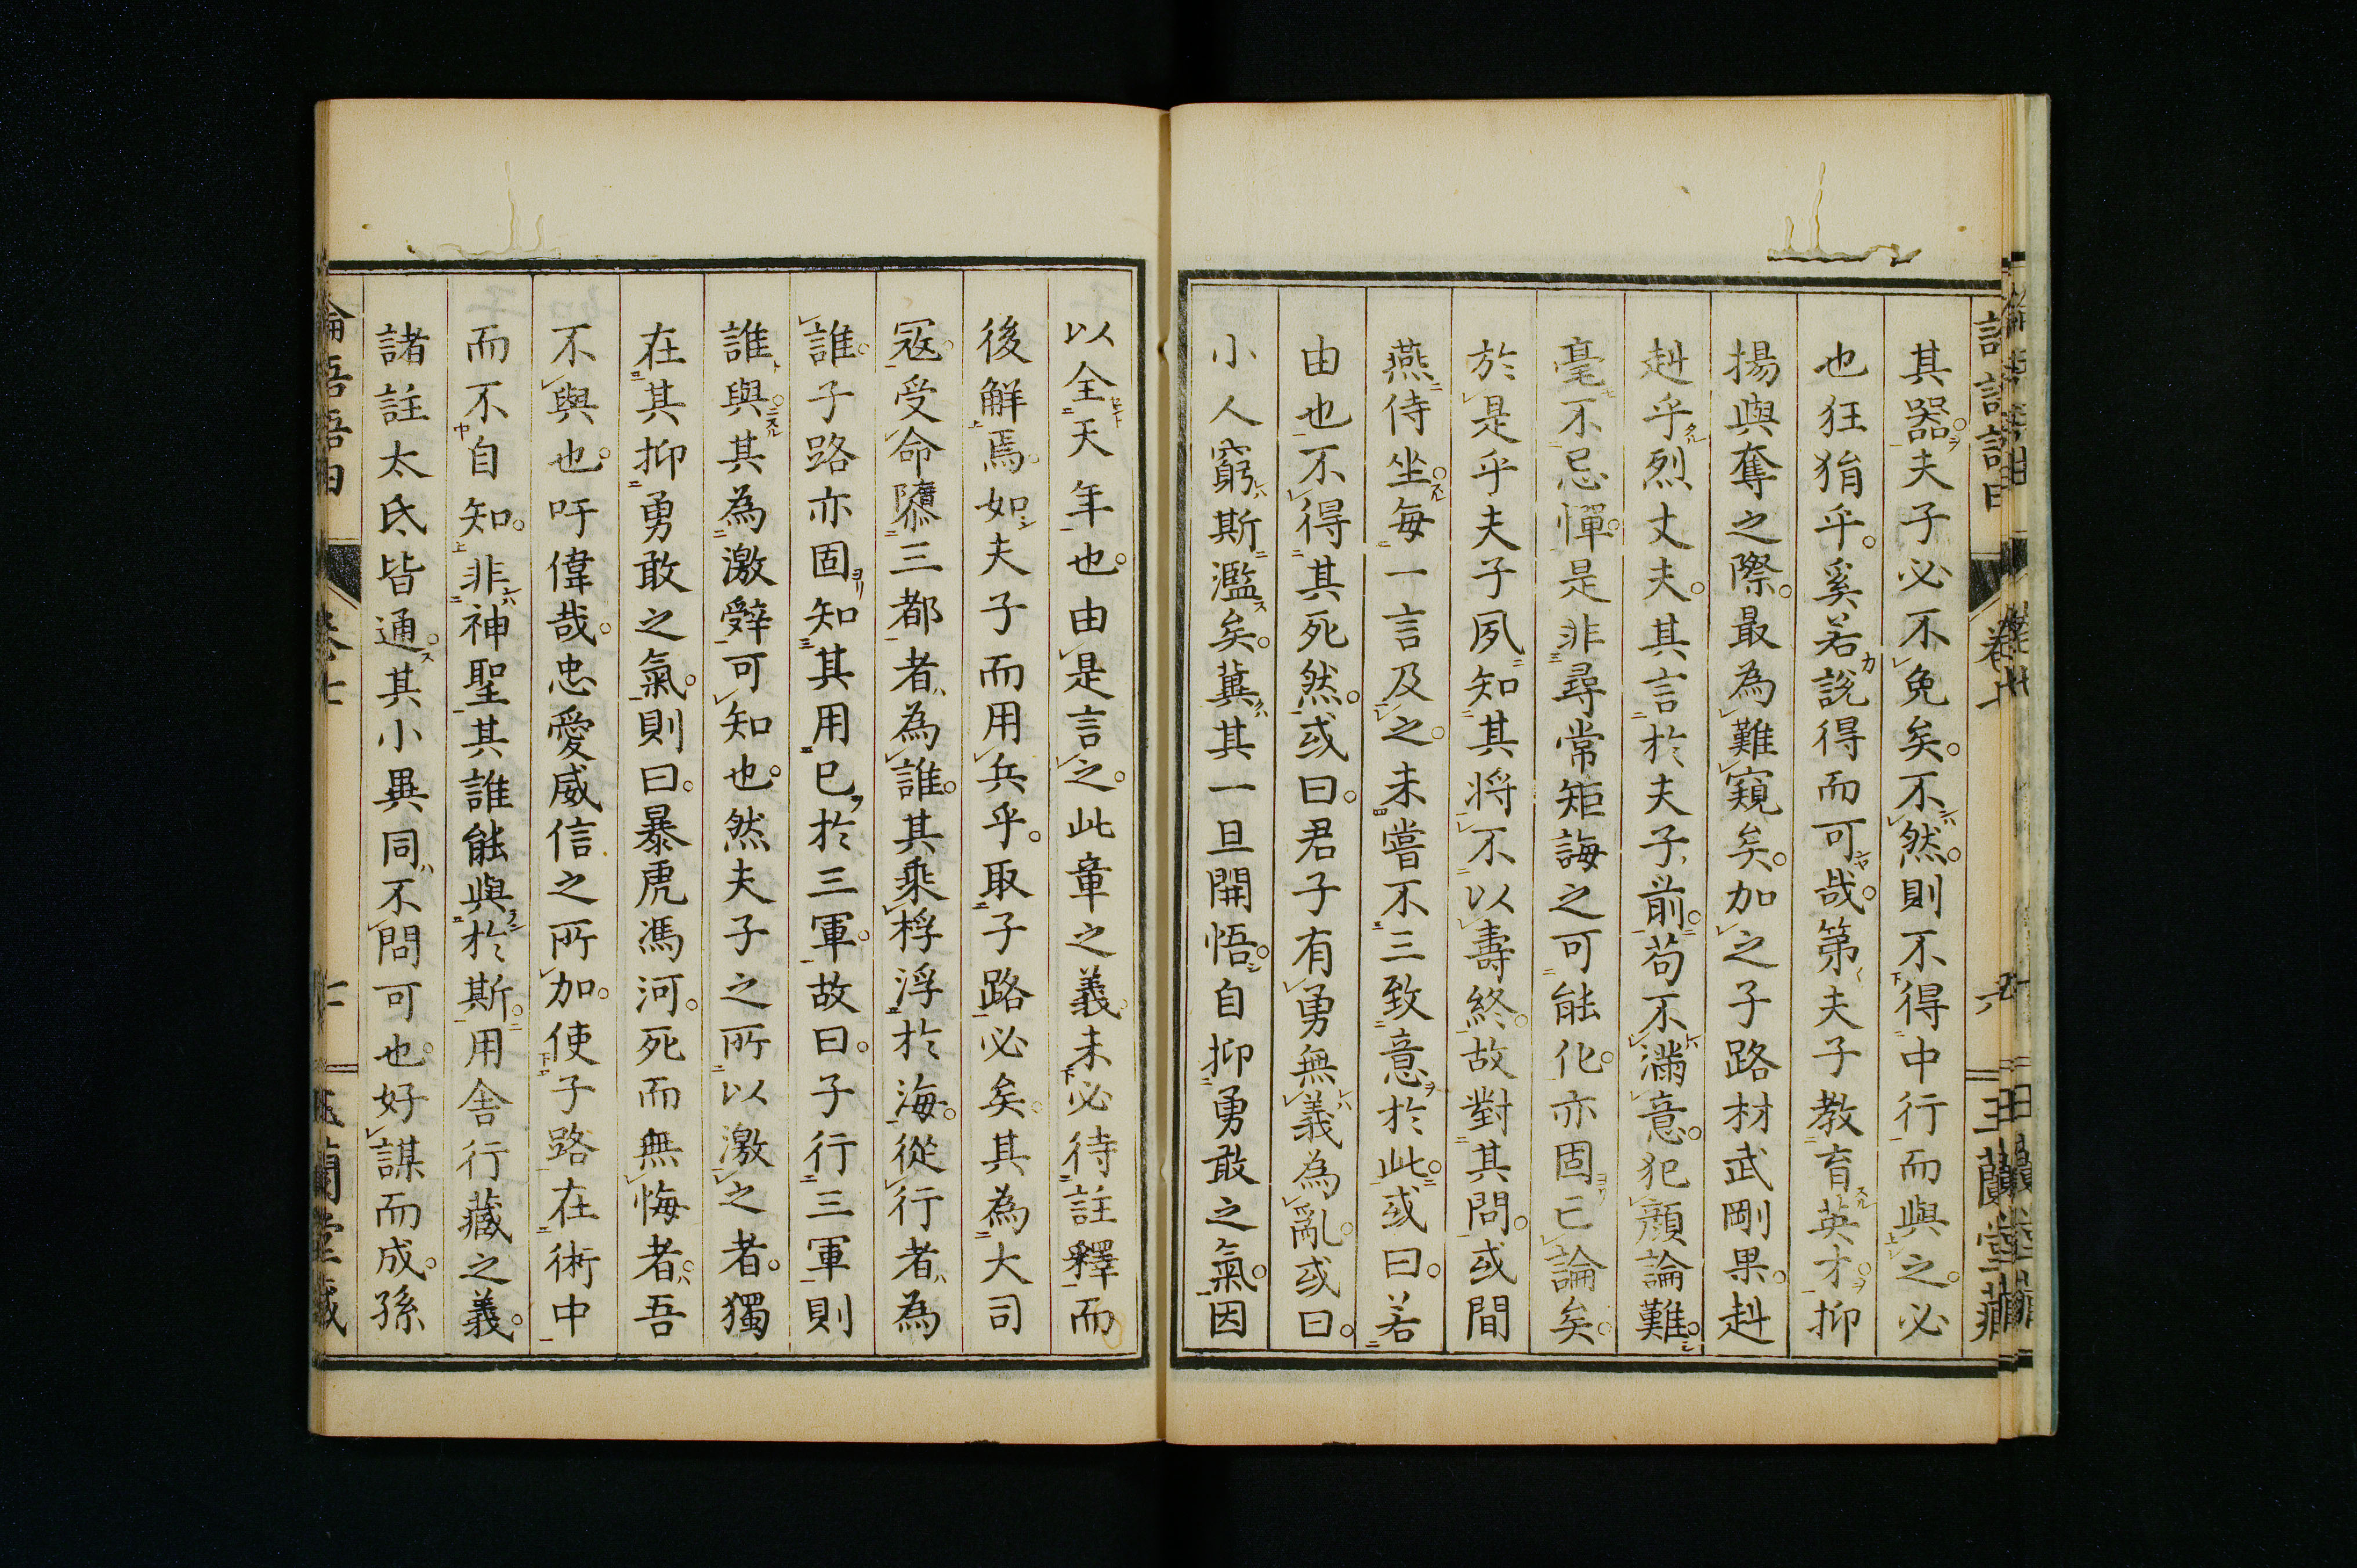 其器夫子必不免矣。不然。則不得中行而與之。必
也狂狷乎。奚若說得而可哉。第夫子教育英才。抑
揚與奪之際。最為難窺矣。加之子路材武剛果。赳
赳乎烈丈夫。其言於夫子前。苟不滿意。犯顏論難。
毫不忌憚。是非尋常矩誨之可能化。亦固已論矣。
於是乎夫子夙知其將不以壽終。故對其問。或間
燕侍坐。每一言及之。未嘗不三致意於此。或曰。若
由也不得其死然。或曰。君子有勇無義為亂。或曰。
小人窮斯濫矣。冀其一旦開悟。自抑勇敢之氣。因
以全天年也。由是言之。此章之義。未必待註釋而
後解焉。如夫子而用兵乎。取子路必矣。其為大司
寇。受命隳三都者為誰。其乘桴浮於海。從行者為
誰。子路亦固知其用已於三軍。故曰。子行三軍則
誰與。其為激辭可知也。然夫子之所以激之者。獨
在其抑勇敢之氣。則曰。暴虎馮河。死而無悔者。吾
不與也。吁偉哉。忠愛威信之所加。使子路在術中
而不自知。非神聖其誰能與於斯。用舍行藏之義。
諸註太氐皆通。其小異同不問可也。好謀而成。孫